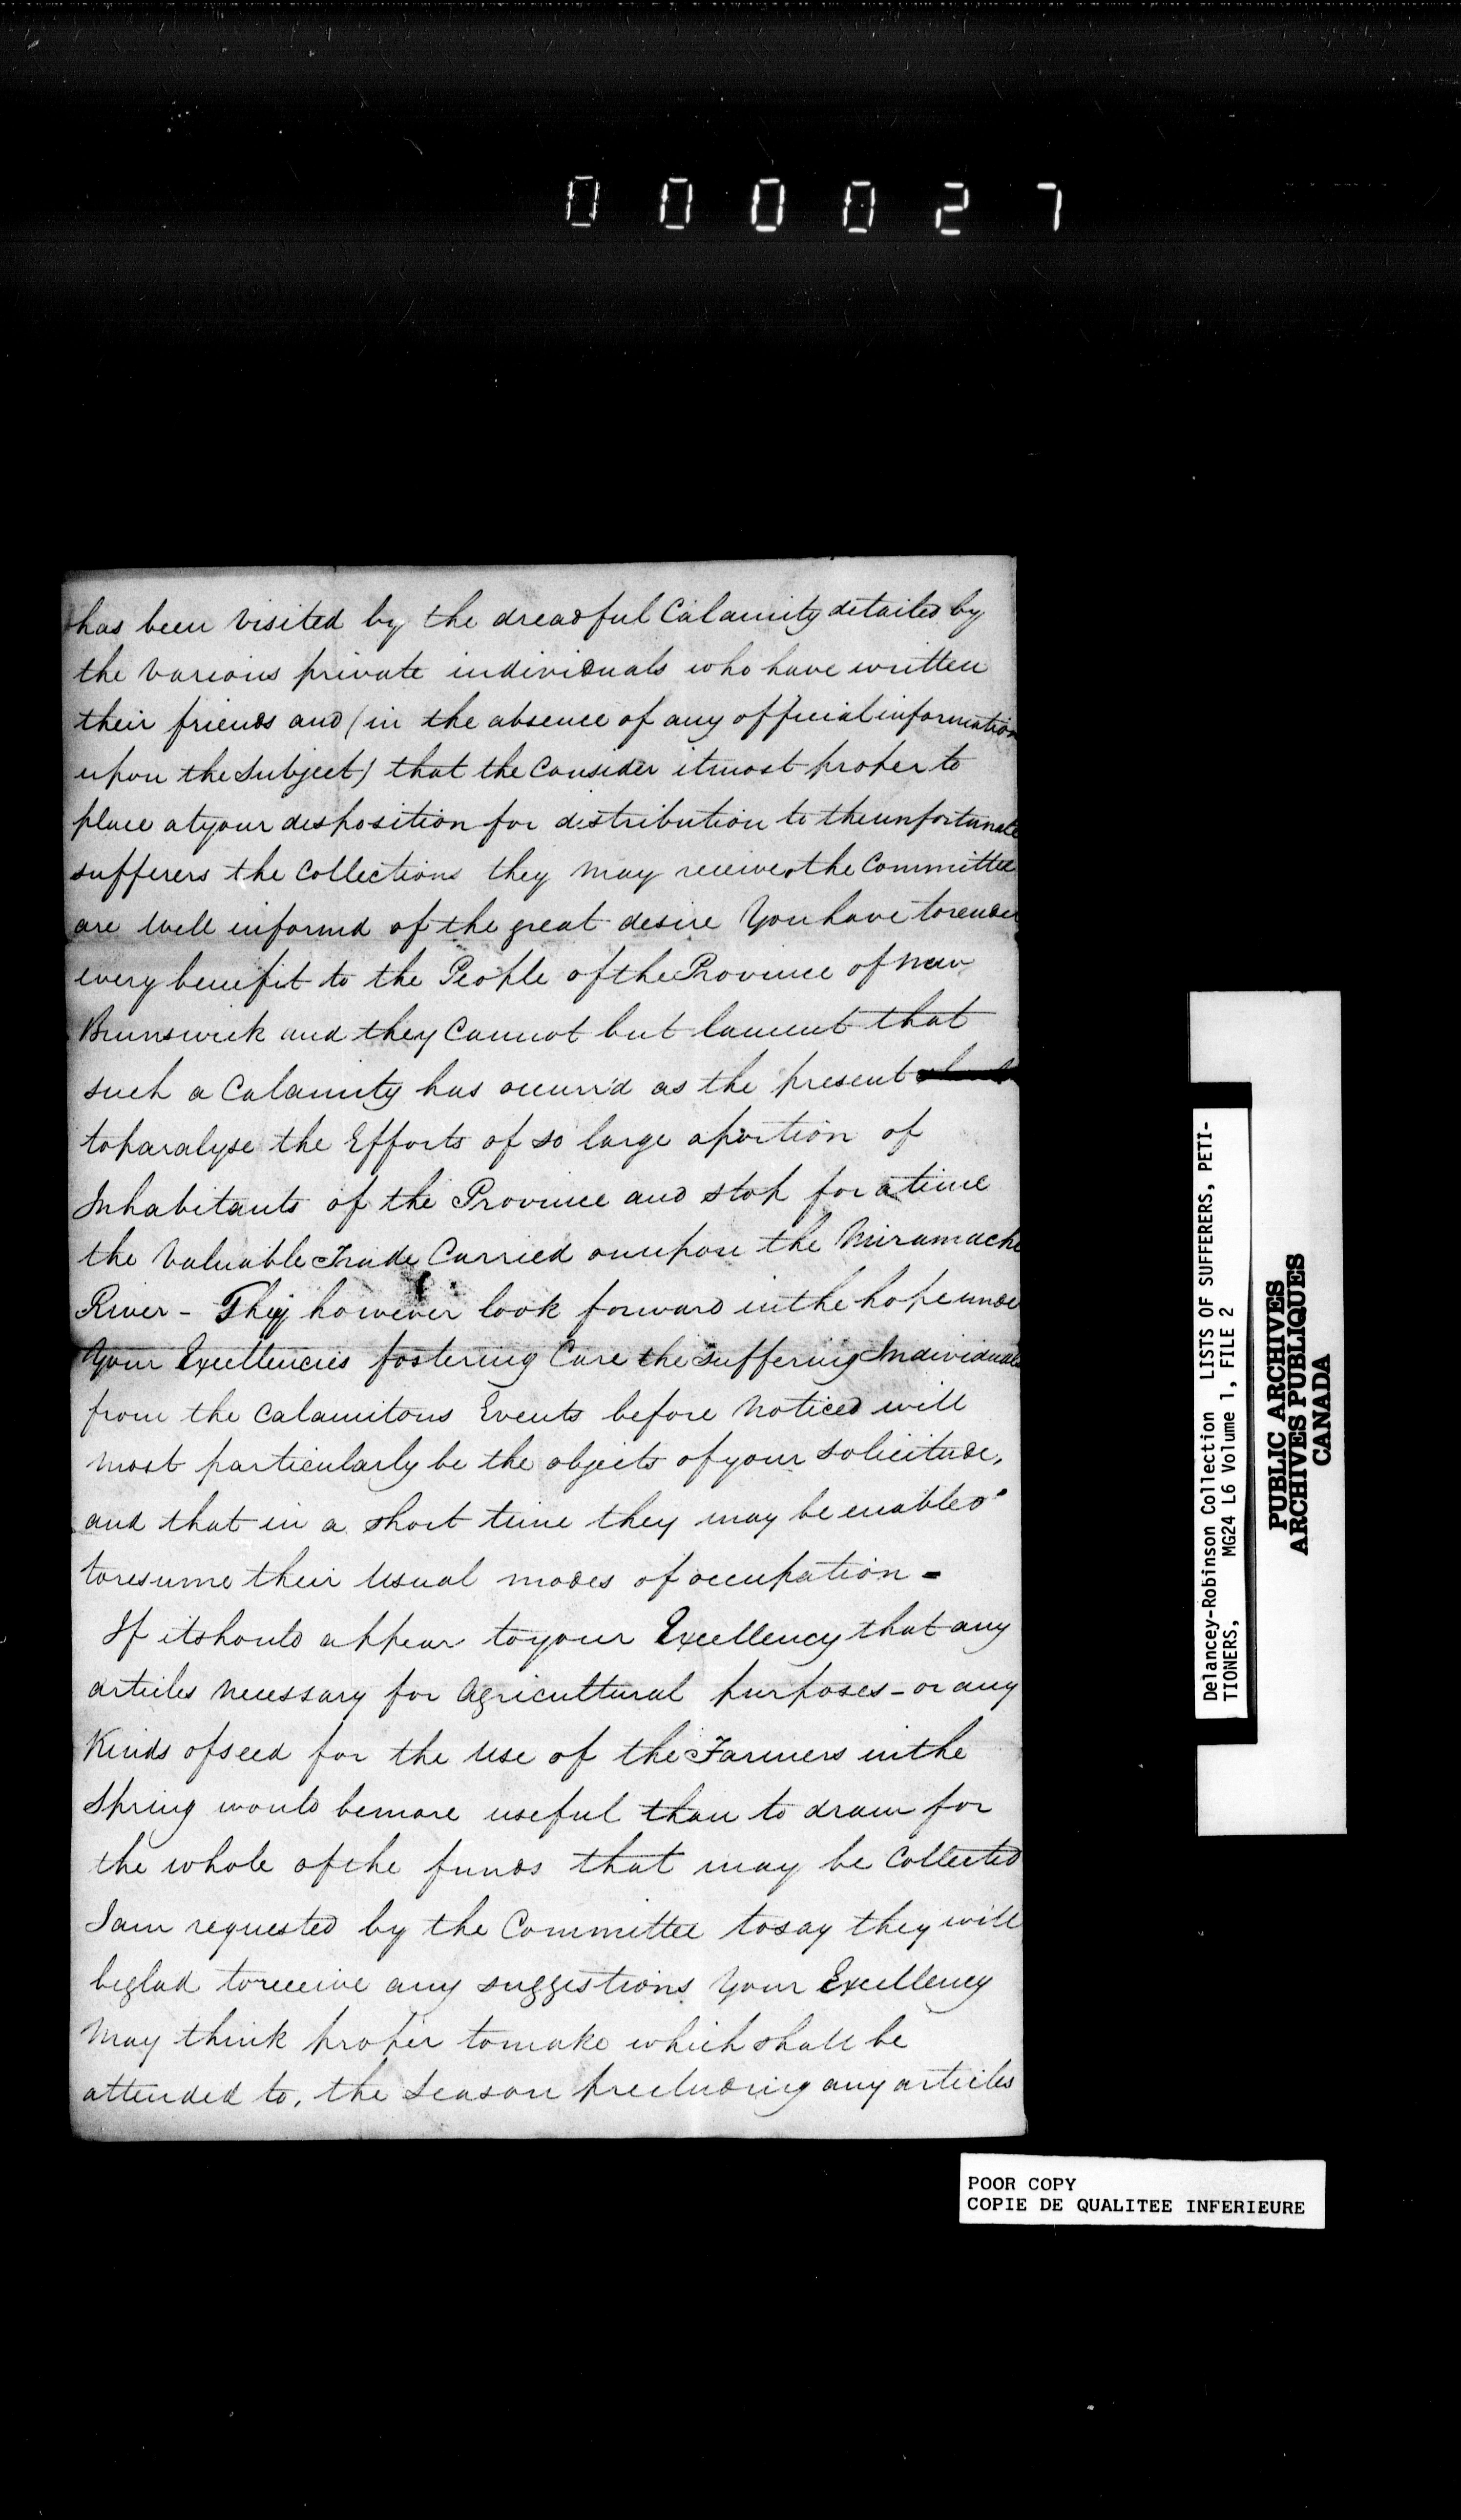 000027
has been visited by the dreadful Calamity detailed by
the various private individuals who have written
their friends and (in the absence of any official information
upon the Subject) that the Consider it most proper to
place at your disposition for distribution to the unfortunate
sufferers the Collections they may receive, the Committee
are well informd of the great desire You have to render
every benefit to the People of the Province of New
Brunswick and they Cannot but lament that
such a Calamity has occurr'd as the present
to paralyse the Efforts of so large a portion of
Inhabitants of the Province and stop for a time
the Valuable Trade Carried on upon the Miramachi
River - They however look forward in the hope under
Your Excellencies fostering Care the suffering Individuals
from the Calamitous Events before Noticed will
most particularly be the objects of your Solicitude,
and that in a short time they may be enabled
to resume their Usual modes of occupation -
If it should appear to your Excellency that any
articles Necessary for Agricultural purposes - or any
Kinds of seed for the Use of the Farmers in the
Spring would be more useful than to draw for
the whole of the funds that may be Collected
I am requested by the Committee to say they will
be glad to receive any suggestions Your Excellency
May think proper to make which shall be
attended to, the Season precluding any articles
Delancey-Robinson Collection LISTS OF SUFFERERS, PETI-
TIONERS, MG24 L6 Volume 1, FILE 2
PUBLIC ARCHIVES
ARCHIVES PUBLIQUES
CANADA
POOR COPY
COPIE DE QUALITEE INFERIEURE